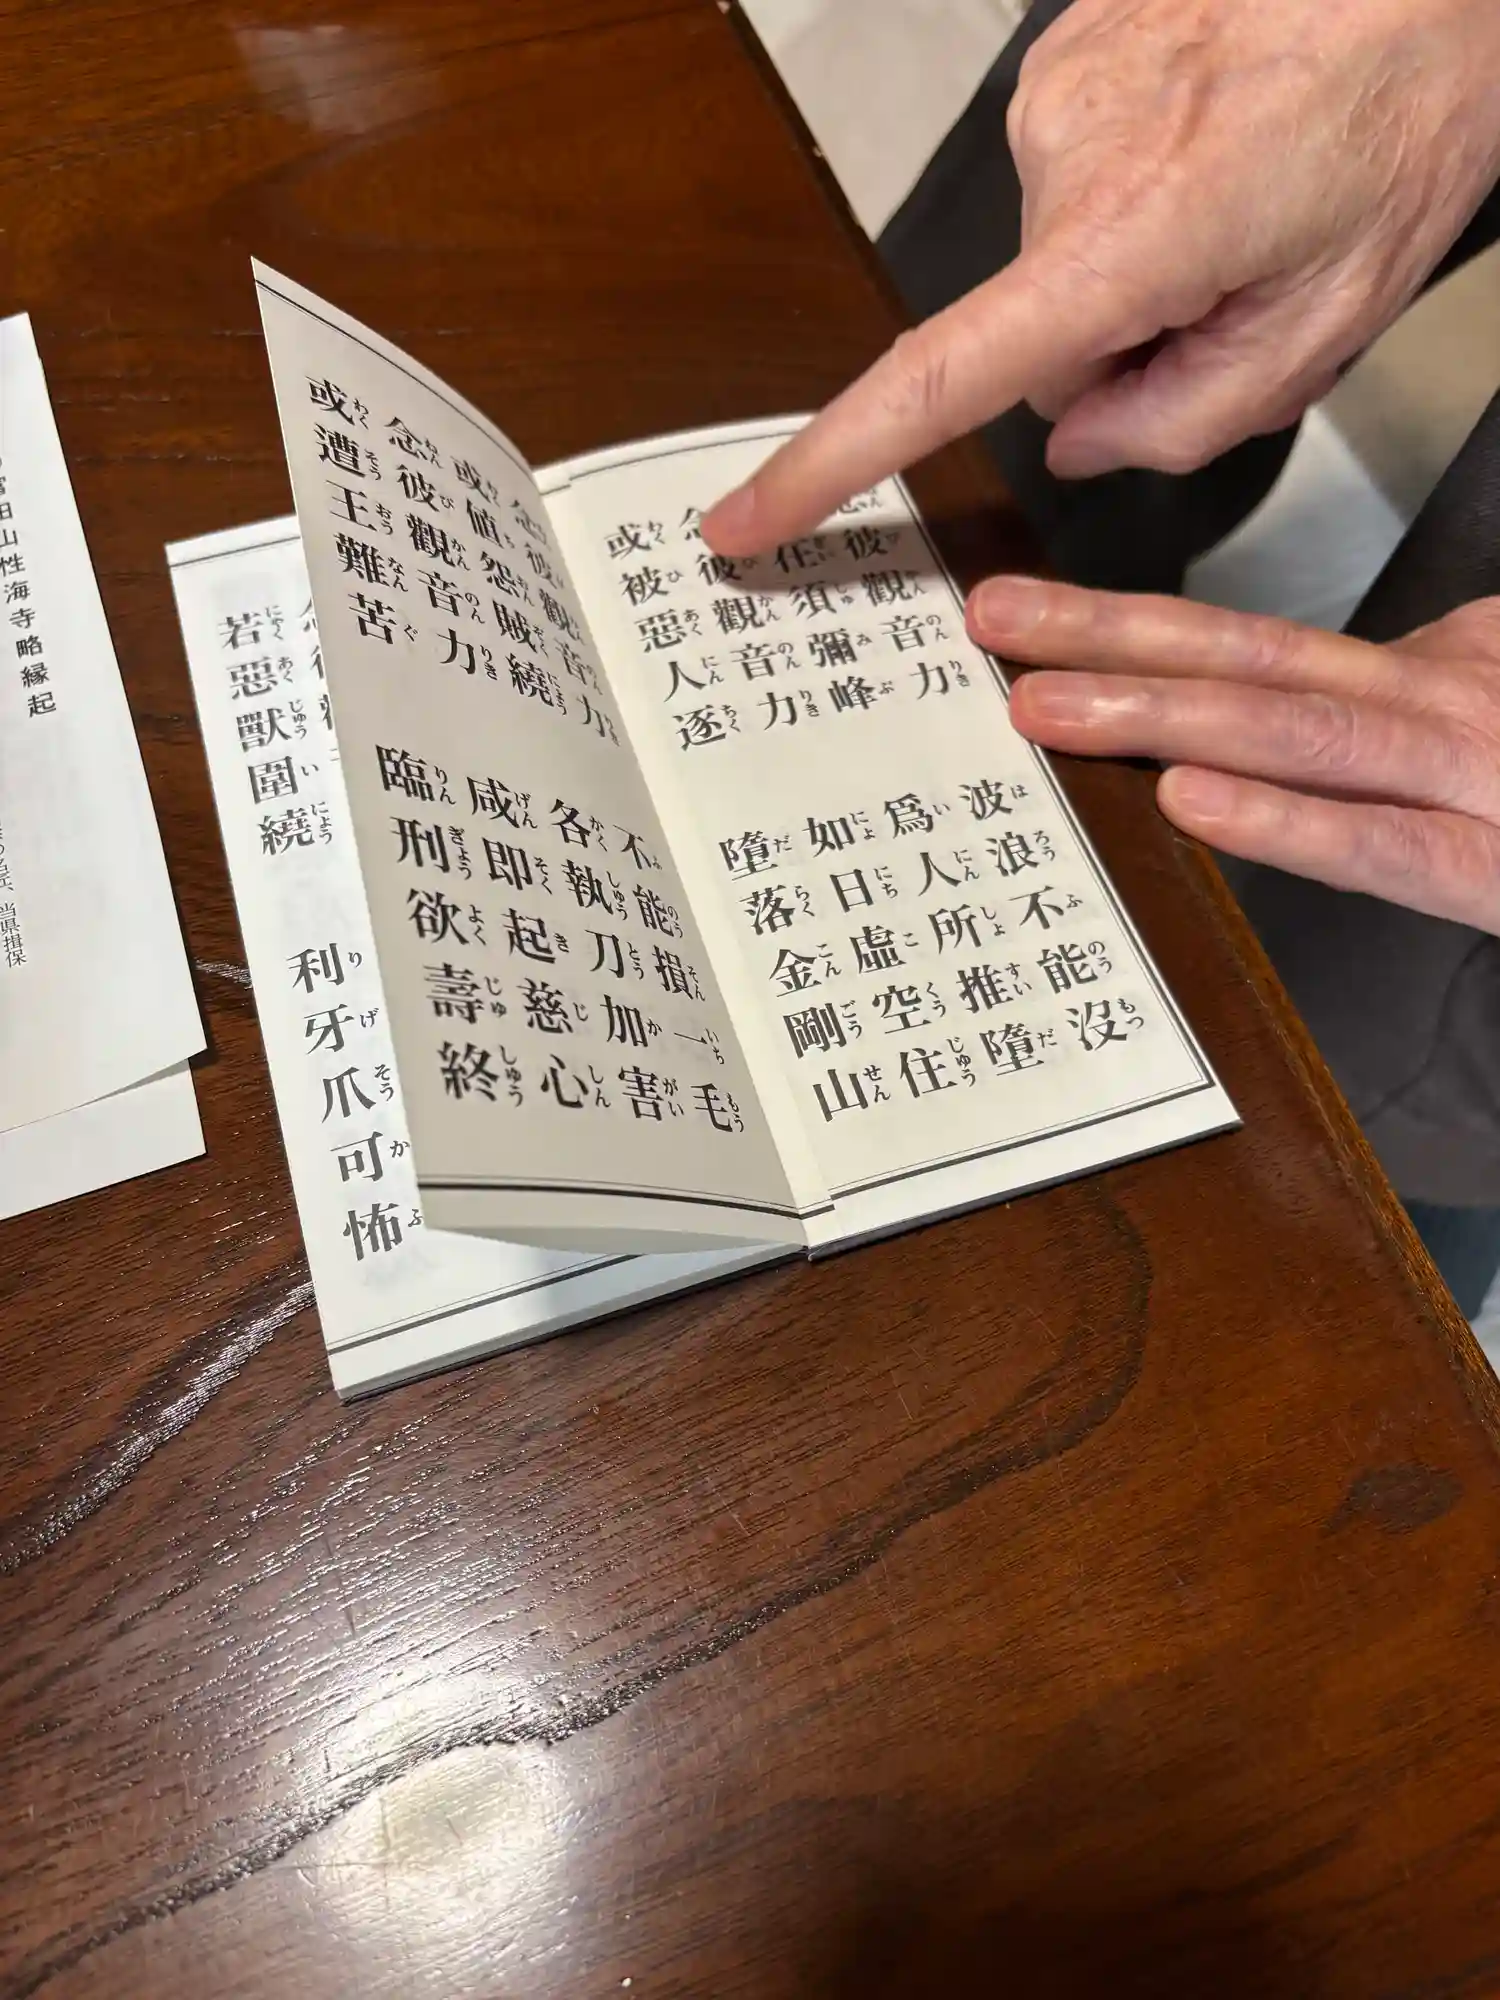 彼觀音力 波浪不能沒
在須彌峰 爲人所推墮
念彼觀音力 如日虛空住
或被惡人逐 墮落金剛山
念彼觀音力 不能損一毛
或値怨賊繞 各執刀加害
念彼觀音力 咸即起慈心
或遭王難苦 臨刑欲壽終
若惡獸圍繞 利牙爪可怖
田山性海寺略縁起
当県揖保